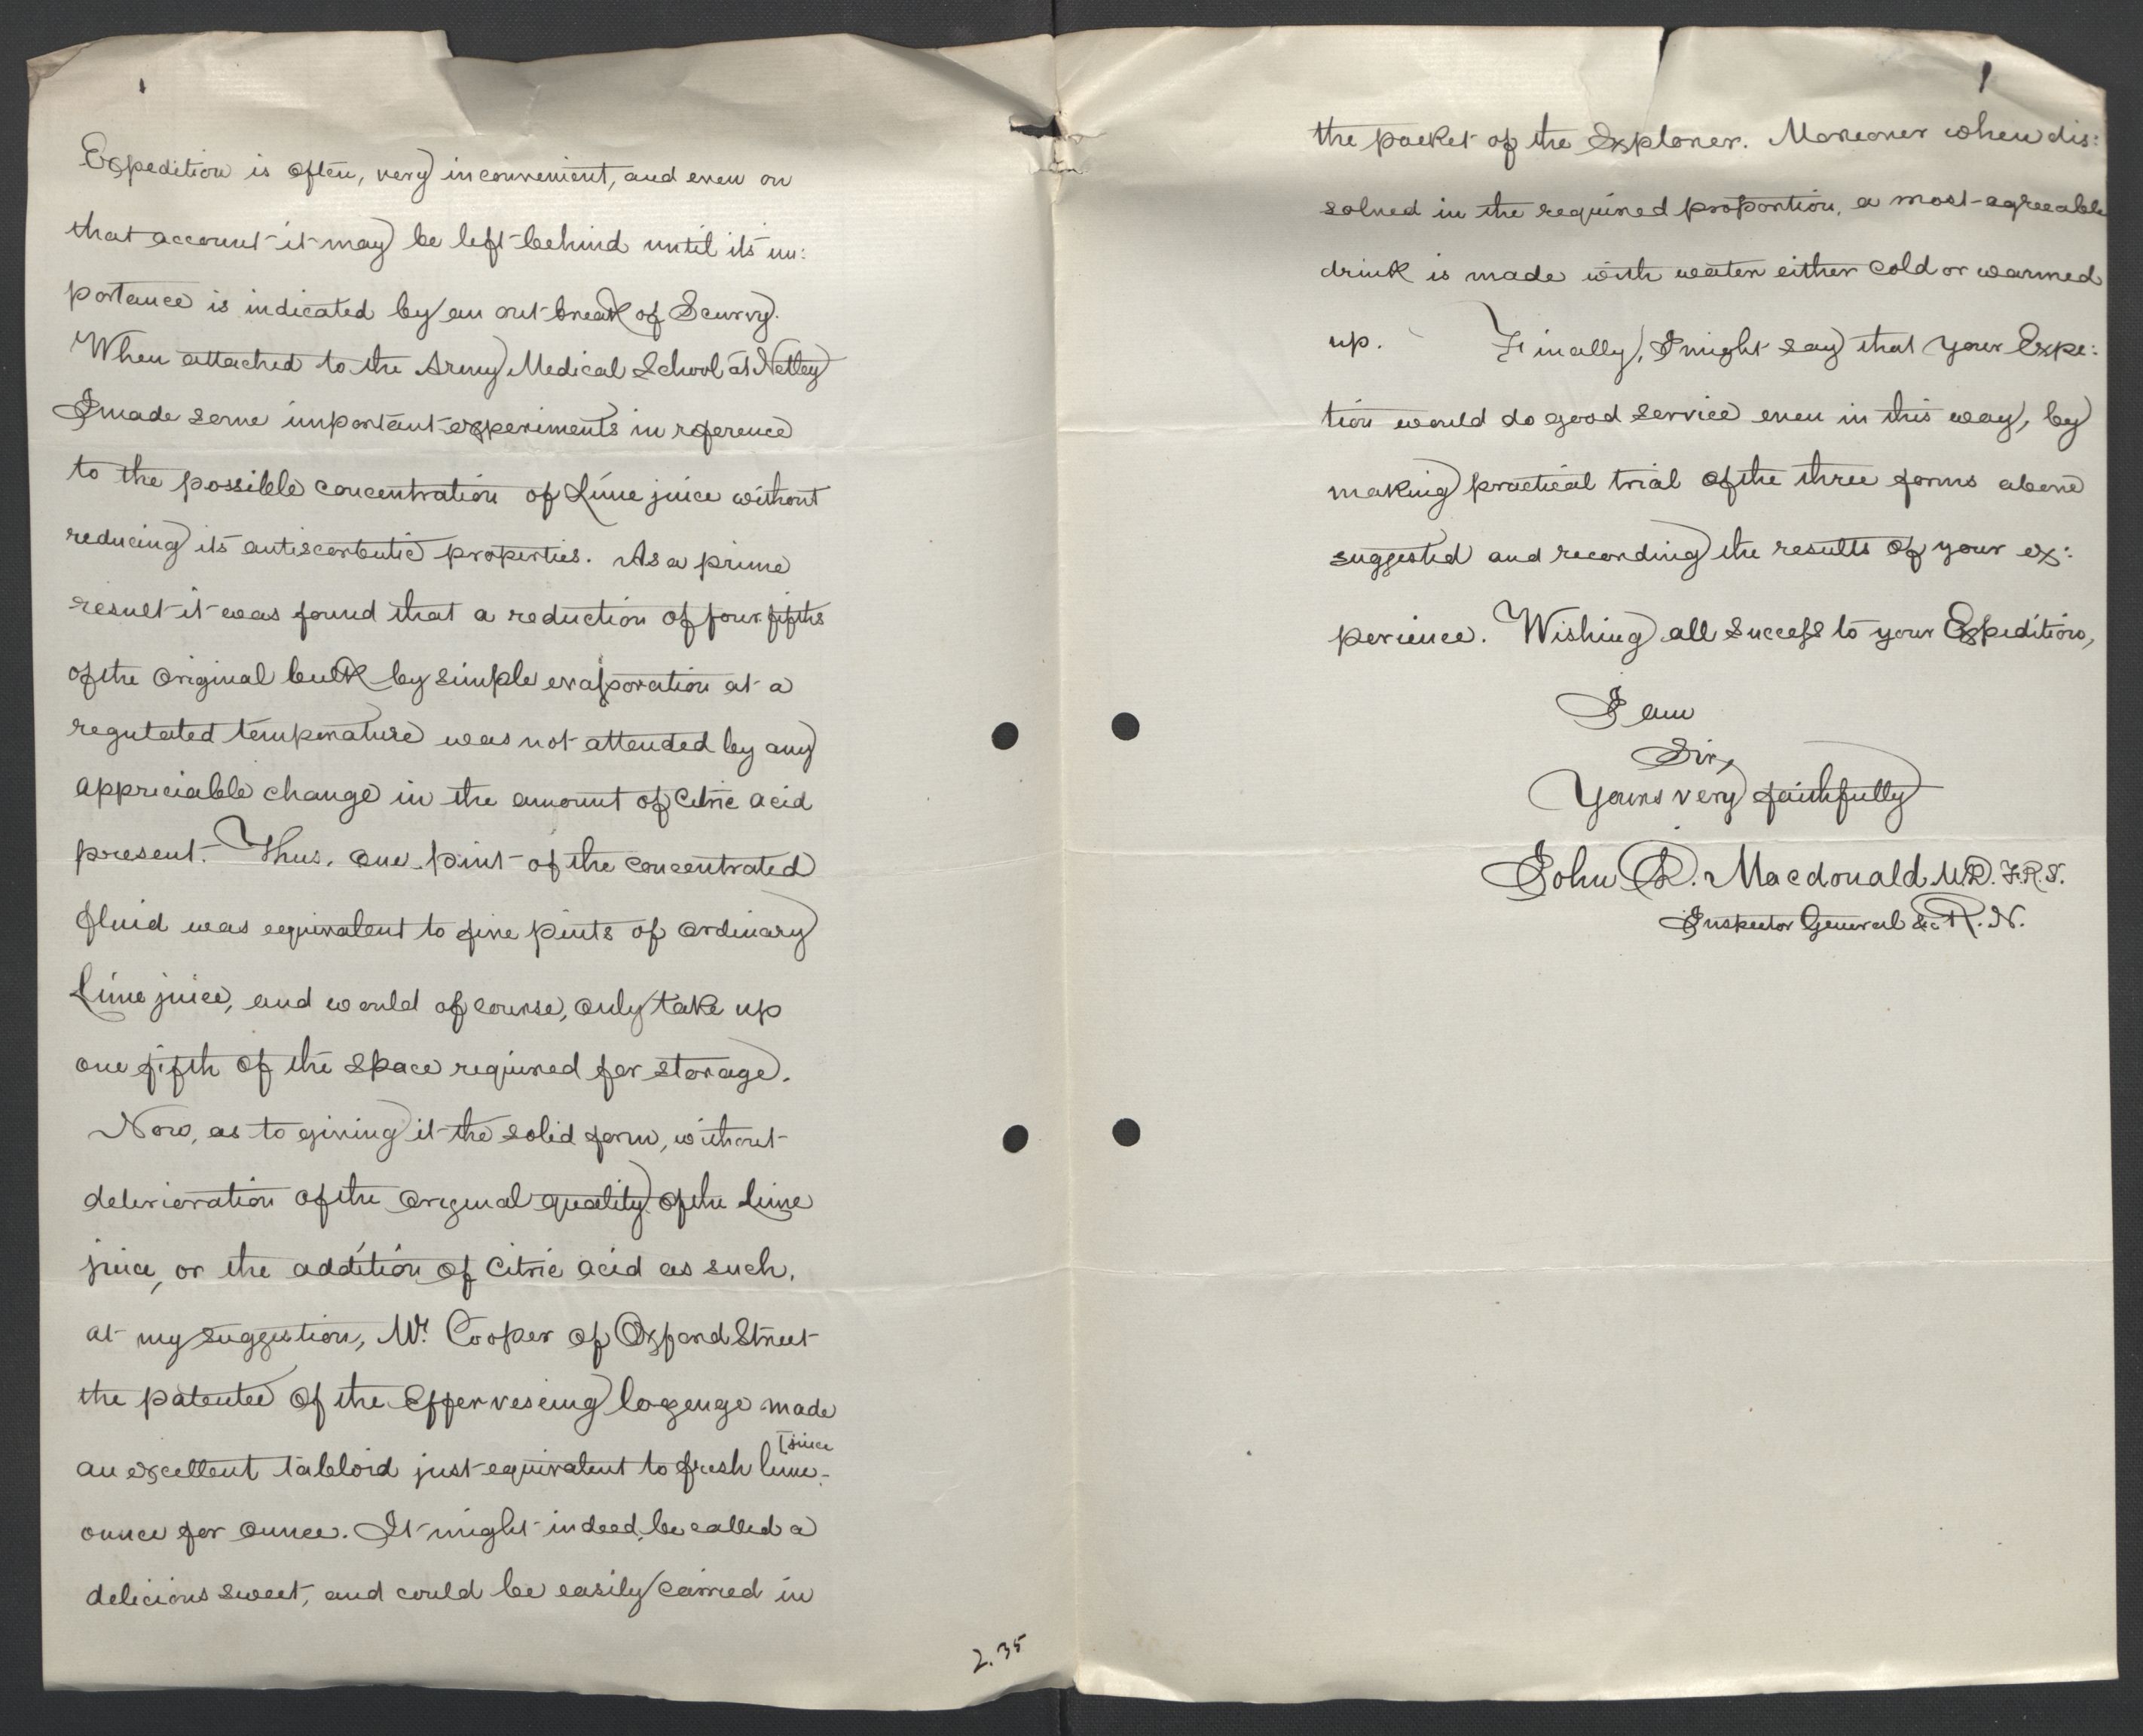 Expedition is often, very inconvenient, and even on
that account it may be left behind until its im:
portance is indicated by an out-break of Scurvy.
When attached to the Army Medical School at Netley
I made some important experiments in reference
to the possible concentration of Lime juice without
reducing its antiscorbutic properties. As a prime
result it was found that a reduction of four fifths
of the original bulk by simple evaporation at a
regulated temperature was not attended by any
appreciable change in the amount of Citric acid
present. Thus, one pint of the concentrated
fluid was equivalent to five pints of ordinary
Lime juice, and would of course, only take up
one fifth of the space required for storage.
Now, as to giving it the solid form, without
deterioration of the original quality of the Lime
juice, or the addition of Citric acid as such,
at my suggestion, Mr. Cooper of Oxford Street
the patentee of the Effervescing lozenge made
[juice
an excellent tabloid just equivalent to fresh lime-
ounce for ounce. It might indeed be called a
delicious sweet, and could be easily carried in
2.35
the pocket of the Explorer. Moreover when dis:
solved in the required proportion, a most agreeable
drink is made with water either cold or warmed
up. Finally, I might say that your Expe:
tion would do good service even in this way, by
making practical trial of the three forms above
suggested and recording the results of your ex:
perience. Wishing all success to your Expedition,
I am
Sir,
Yours very faithfully
John D. Macdonald M.D. F.R.S.
Inspector General &c R.N.